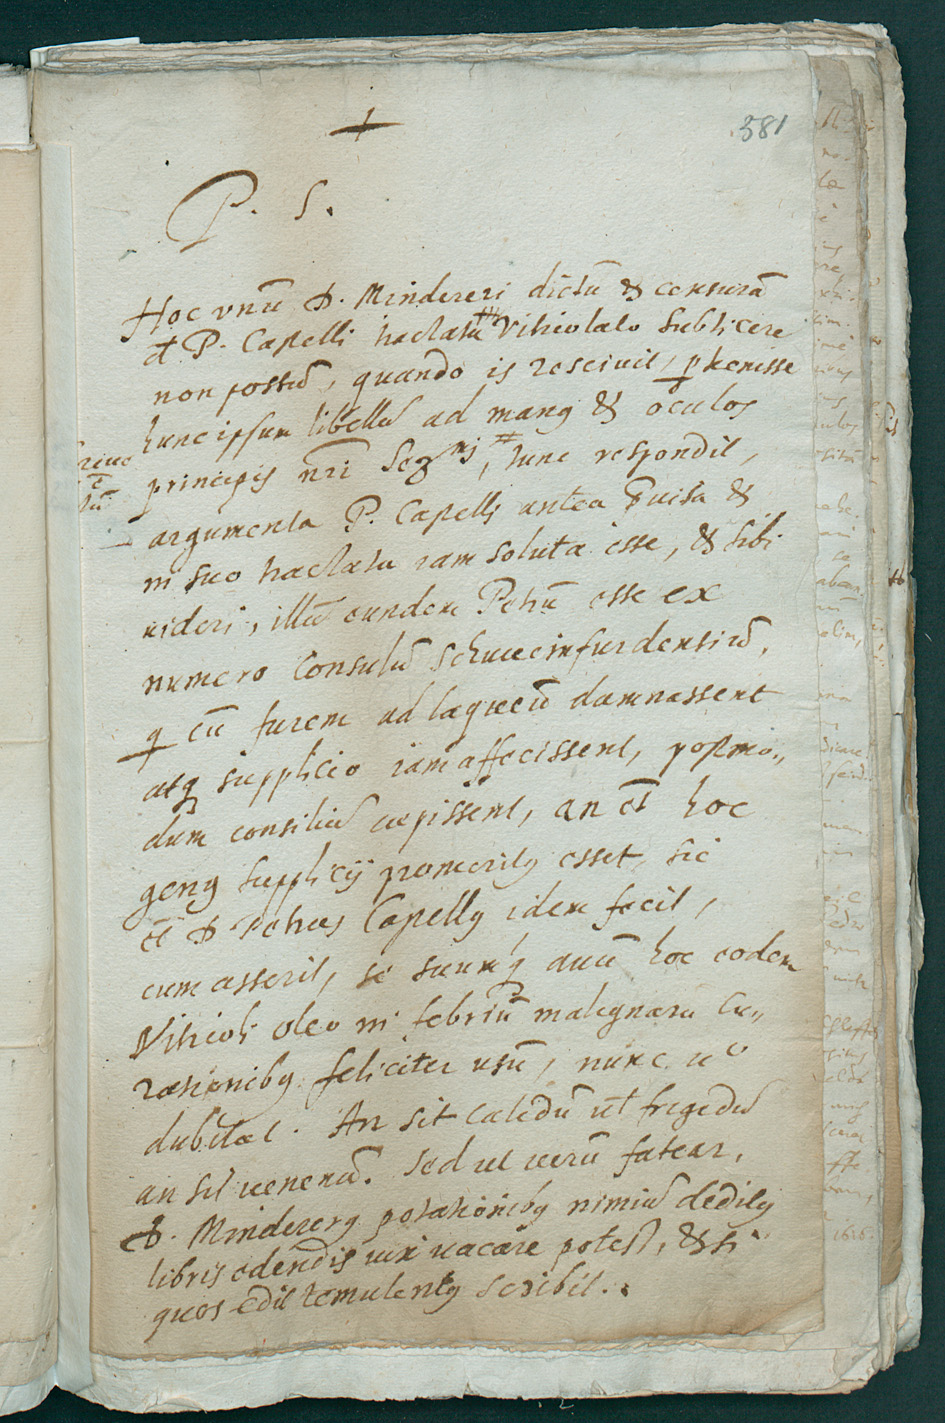 381
P. S.
Hoc vnū D. Mindereri dictū & censurā
d P. Castelli tractatu Vitriolato subticere
non possū, quando is resciuit, peruenisse
hunc ipsum libellū ad manꝰ & oculos
principis nr̄i Sereᵐⁱ, tunc respondit,
argumenta P. Castelli antea p̄uisa &
in suo tractatu iam soluta esse, & sibi
uideri, illū eundem Petrū esse ex
numero Consulū Schweinfurdensiū,
q cū furem ad laqueū damnassent
atq supplicio iam affecissent, postmo„
dum consiliū cepissent, an et hoc
genꝰ supplicij promeritꝰ esset, sic
et D Petrus Castellꝰ idem facit,
cum asserit, se suumq auū hoc eodem
Vitrioli oleo in febriū malignarū cu„
rationibꝰ feliciter usū, nunc uº
dubitat. An sit calidū ut frigidū
an sit uenenū. Sed ut uerū fatear,
D. Mindererꝰ potationibꝰ nimiū deditꝰ
libris edendis uix uacare potest, & si
quos edit temulentꝰ scribit.